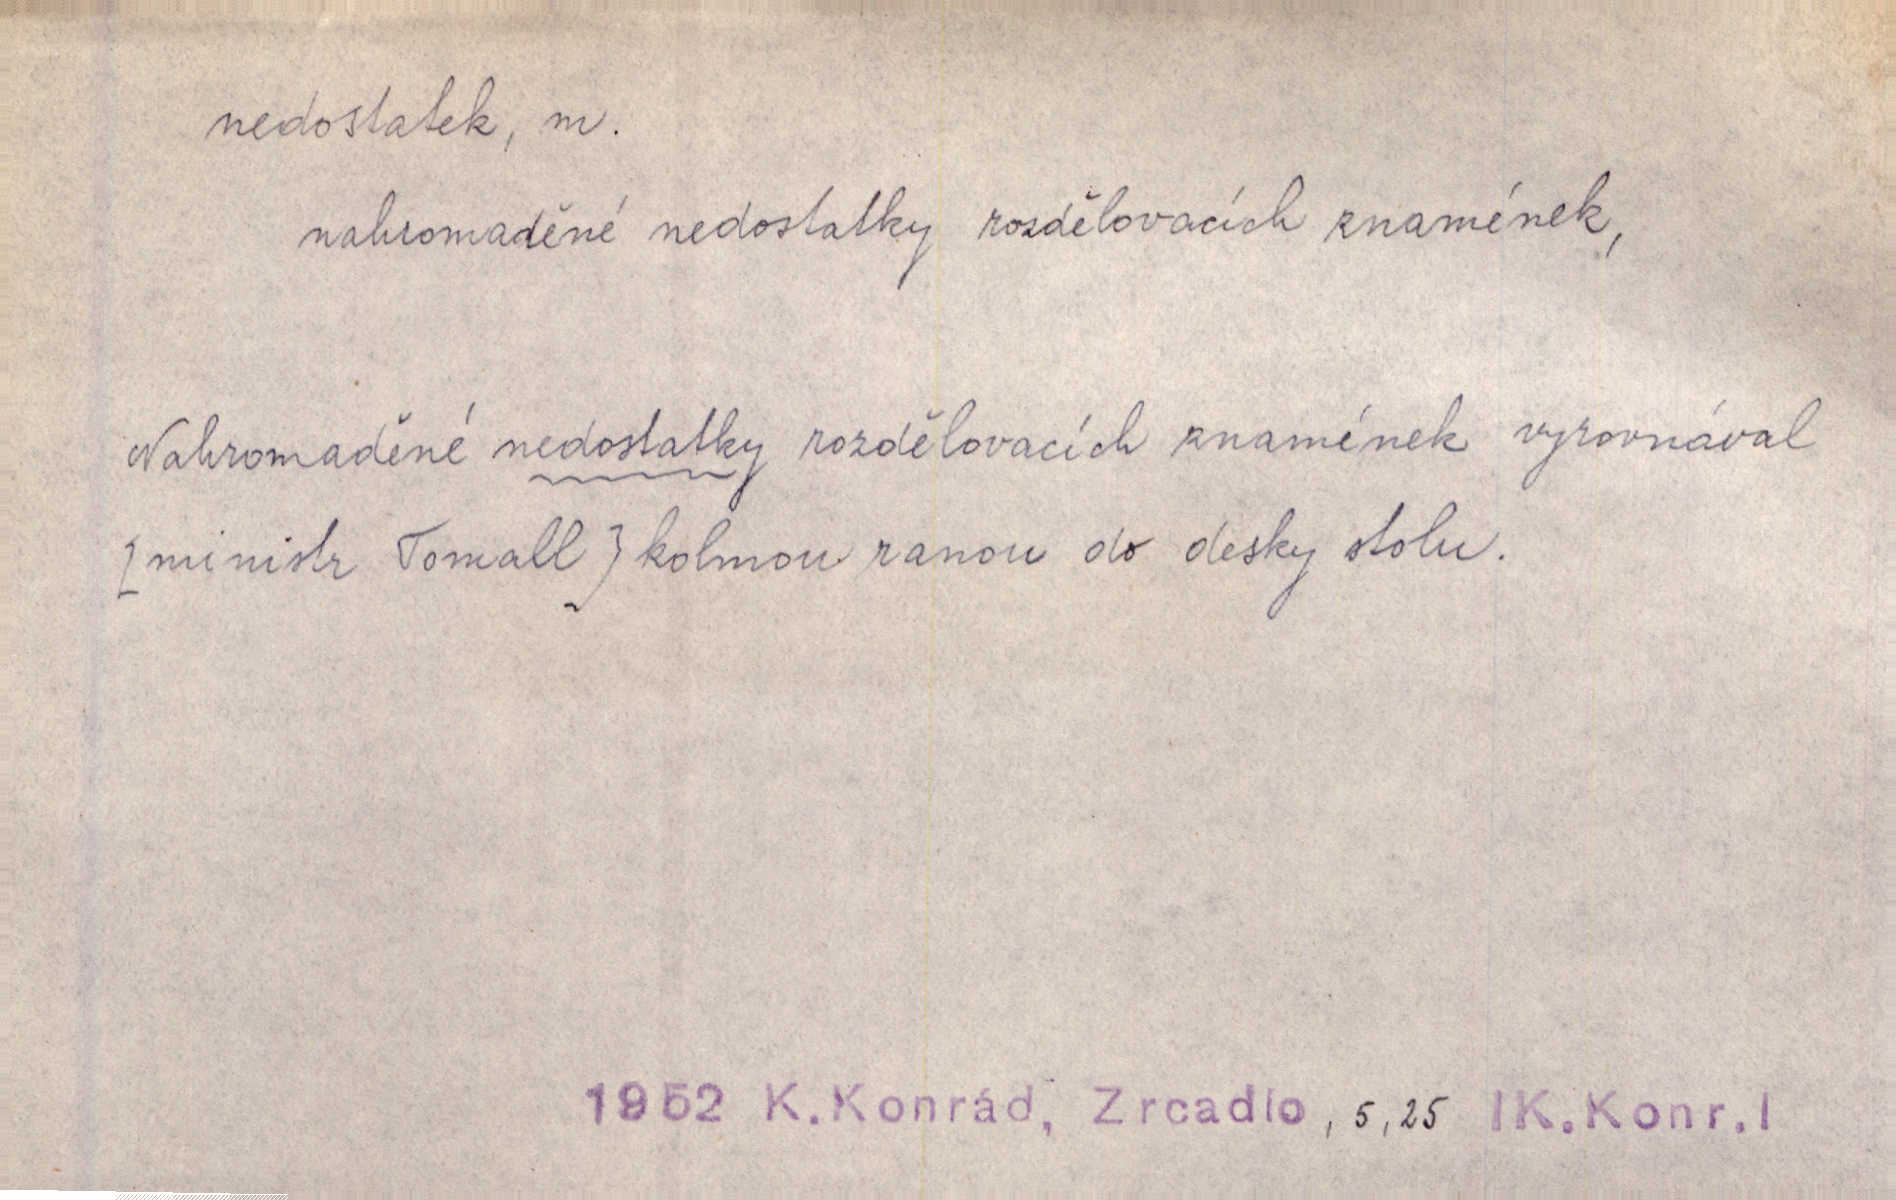 nedostatek, m.
nahromaděné nedostatky rozdělovacích znamének,
Nahromaděné nedostatky rozdělovacích znamének vyrovnával
[ministr Tomall] kolmou ranou do desky stolu.
1952 K.Konrád, Zrcadlo, 5, 25 |K.Konr.|